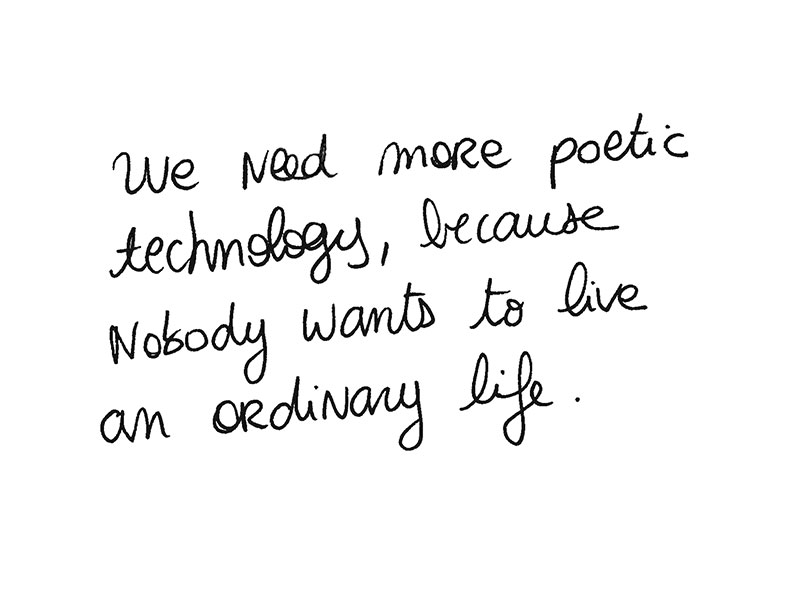 We need more poetic
technology, because
Nobody wants to live
an ordinary life.